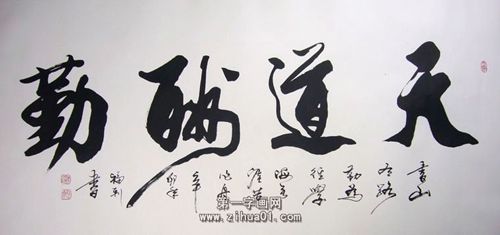 天道酬勤
書山
有路
勤為
徑學
海無
涯苦
作舟
書
第一字画网
www.zihua01.com